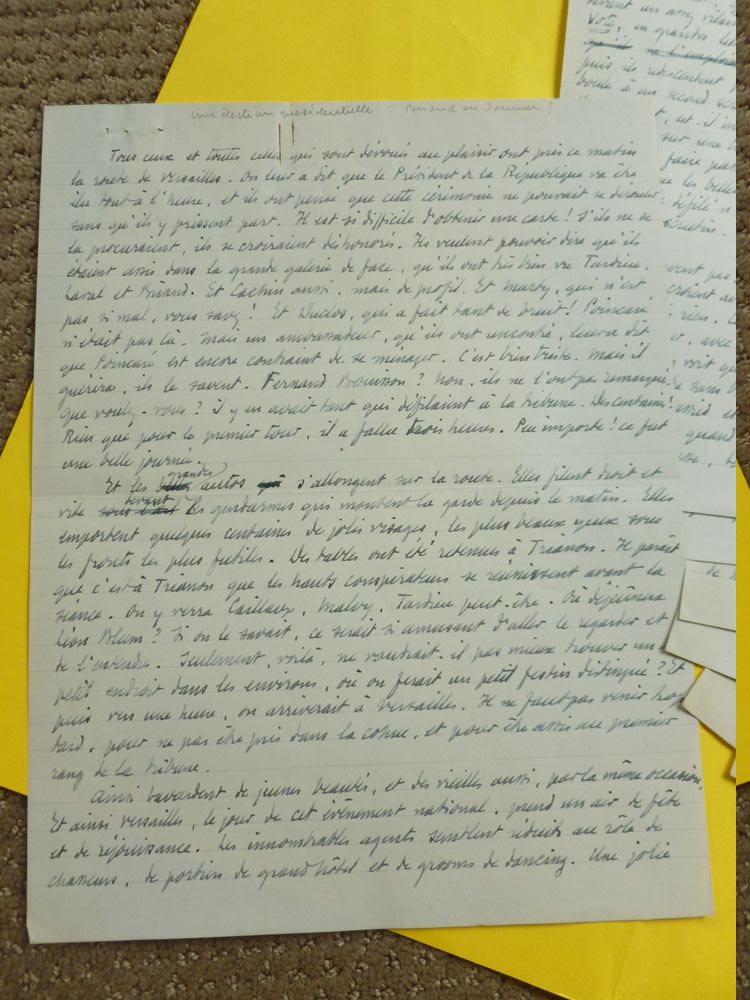 une élection présidentielle : Briand ou Doumer ?
Tous ceux et toutes celles qui sont dévoués au plaisir ont pris ce matin
la route de Versailles. On leur a dit que le Président de la République va être
élu tout à l'heure, et ils ont pensé que cette cérémonie ne pouvait se dérouler
sans qu'ils y prissent part. Il est si difficile d'obtenir une carte ! S'ils ne se
la procuraient, ils se croiraient déshonorés. Ils veulent pouvoir dire qu'ils
étaient assis dans la grande galerie de face, qu'ils ont très bien vu Tardieu,
Laval et Briand. Et Cachin aussi, mais de profil. Et Marty, qui n'est
pas si mal, vous savez ! Et Duclos, qui a fait tant de bruit ! Poincaré
n'était pas là. Mais un ambassadeur, qu'ils ont rencontré, leur a dit
que Poincaré est encore contraint de se ménager. C'est bien triste. Mais il
guérira, ils le savent. Fernand Bouisson ? Non, ils ne l'ont pas remarqué.
Que voulez-vous ? il y en avait tant qui défilaient à la tribune. Des centaines !
Rien que pour le premier tour, il a fallu trois heures. Peu importe ! ce fut
une belle journée.
grandes
Et les autos s'allongent sur la route. Elles filent droit et
devant
vite les gendarmes qui montent la garde depuis le matin. Elles
emportent quelques centaines de jolis visages, les plus beaux yeux sous
les fronts les plus futiles. Des tables ont été retenues à Trianon. Il paraît
que c'est à Trianon que les hauts conspirateurs se réunissent avant la
séance. On y verra Caillaux, Malvy, Tardieu peut-être. Où déjeunera
Léon Blum ? Si on le savait, ce serait si amusant d'aller le regarder et
de l'entendre. Seulement, voilà, ne vaudrait-il pas mieux trouver un
petit endroit dans les environs, où on ferait un petit festin distingué ? Et
puis vers une heure, on arriverait à Versailles. Il ne faut pas venir trop
tard, pour ne pas être pris dans la cohue, et pour être assis au premier
rang de la tribune.
Ainsi bavardent de jeunes beautés, et des vieilles aussi, par la même occasion.
Et ainsi Versailles, le jour de cet événement national, prend un air de fête
et de réjouissance. Les innombrables agents semblent réduits au rôle de
chasseurs, de portiers de grand hôtel et de grooms de dancing. Une jolie